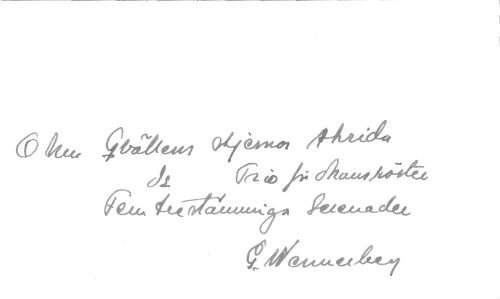 O huu Qvällens stjernor skrida
Is Trio för Mansröster
Fem trestämmiga Serenader
G. Wennerberg